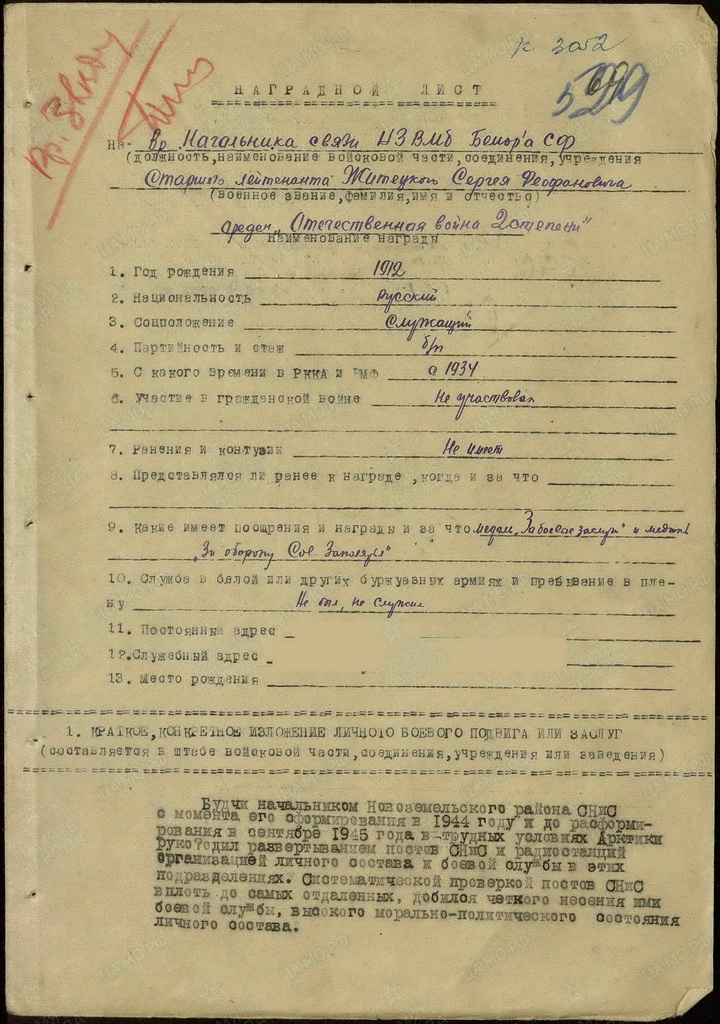 к 3052
529
Кр. Звезду
НАГРАДНОЙ ЛИСТ
на- Вр. Начальника связи НЗВМб Бемор'а СФ
(должность, наименование войсковой части, соединения, учреждения
Старшего лейтенанта Житецкого Сергея Феофановича
(военное звание, фамилия, имя и отчество)
орден „Отечественная война 2 степени"
наименование награды
1. Год рождения 1912
2. Национальность русский
3. Соцположение Служащий
4. Партийность и стаж б/п
5. С какого времени в РККА и ВМФ с 1934
6. Участие в гражданской войне Не участвовал
7. Ранения и контузии Не имеет
8. Представлялся ли ранее к награде, когда и за что
9. Какие имеет поощрения и награды и за что медаль „За боевые заслуги" и медаль
„За оборону Сов. Заполярья"
10. Служба в белой или других буржуазных армиях и пребывание в пле-
ну Не был, не служил
11. Постоянный адрес
12. Служебный адрес
13. Место рождения
1. КРАТКОЕ, КОНКРЕТНОЕ ИЗЛОЖЕНИЕ ЛИЧНОГО БОЕВОГО ПОДВИГА ИЛИ ЗАСЛУГ
(составляется в штабе войсковой части, соединения, учреждения или заведения)
Будучи начальником Новоземельского района СНиС
с момента его сформирования в 1944 году и до расформи-
рования в сентябре 1945 года в трудных условиях Арктики
руководил развертыванием постов СНиС и радиостанций
организацией личного состава и боевой службы в этих
подразделениях. Систематической проверкой постов СНиС
вплоть до самых отдаленных, добился четкого несения ими
боевой службы, высокого морально-политического состояния
личного состава.